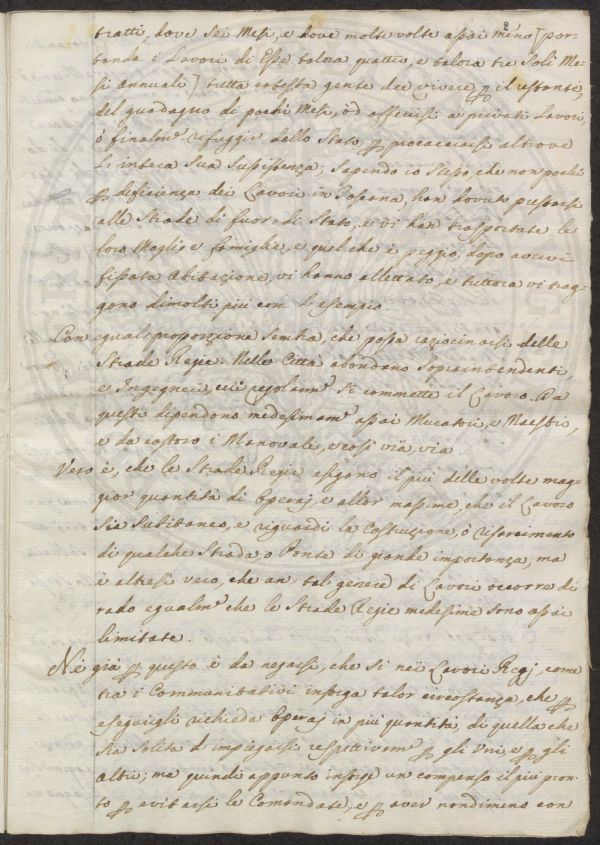 2
tratti, dove sei Mesi, e dove molte volte assai meno [por-
tando i Lavori di Esse talora quattro, e talora tre soli Me-
si annuali] tutta codesta gente dee vivere ꝑ il restante,
del guadagno di pochi Mesi, ò ad offerirsi a privati Lavori,
ò finalm.e rifuggir dallo Stato, ꝑ procacciarsi altrove
L'intera sua sussistenza; Sapendo io stesso, che non pochi
ꝑ deficienza dei Lavori in Toscana, han dovuto prestarsi
alle Strade di fuori di Stato, e vi han trasportate le
loro Mogli e famiglie, e quel che è peggio, dopo avervi
fissata abitazione, vi hanno allettato, e tuttora vi trag-
gono dimolti più con l'esempio.
Con egual proporzione sembra, che possa raziocinarsi delle
Strade Regie. Nelle Città abondano Soprintendenti,
e Ingegneri, cui regolarm.e si commette il Lavoro. Da
questi dipendono medesimam.e assai Muratori, e Maestri,
e da costoro i Manovali, e così via, via
Vero è, che le Strade Regie esigono il più delle volte mag-
gior quantità di Operaj, e allor massime, che il Lavoro
sia subitaneo, e riguardi la Costruzione, ò risarcimento
di qualche Strada, o Ponte di grande importanza, ma
è altresì vero, che un tal genere di Lavori occorre di
rado egualm.e che le Strade Regie medesime sono assai
limitate.
Nè già ꝑ questo è da negarsi, che sì nei Lavori Regj, come
tra i Communitativi insorga talor circostanza, che ꝑ
eseguirgli richieda Operaj in più quantità, di quella che
sia solita d'impiegarsi respettivam.e ꝑ gli Uni, e ꝑ gli
altri; ma quindi appunto insorge un compenso il più pron-
to ꝑ evitarsi le Comandate, e ꝑ aver nondimeno con